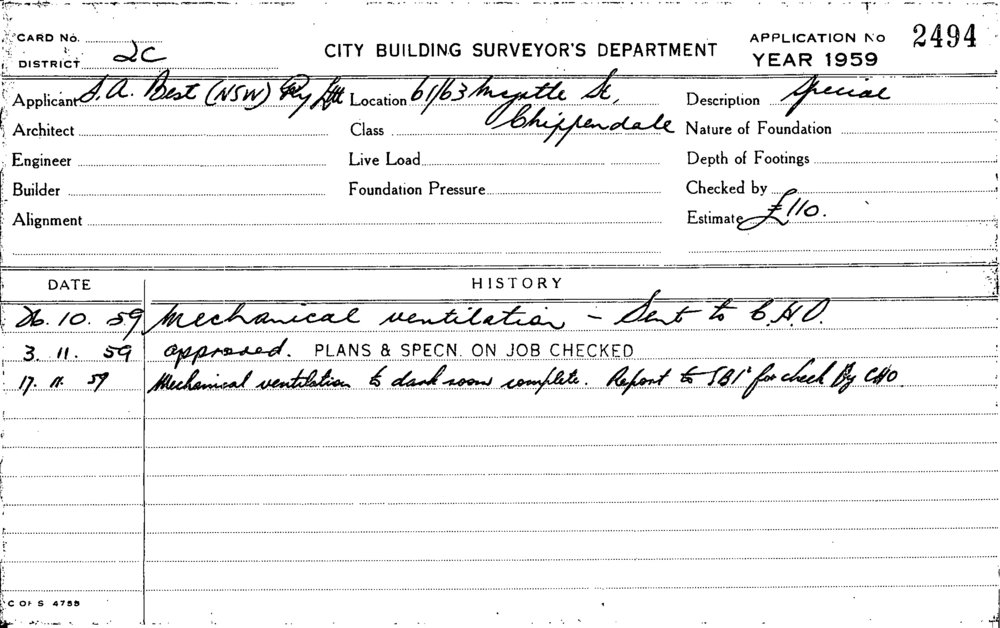 CARD No.
DISTRICT 2C
CITY BUILDING SURVEYOR'S DEPARTMENT
APPLICATION No 2494
YEAR 1959
Applicant S.A. Best (NSW) Pty Ltd Location 61/63 Myrtle St, Description Special
Architect Class Chippendale Nature of Foundation
Engineer Live Load Depth of Footings
Builder Foundation Pressure Checked by
Alignment Estimate £110.
DATE HISTORY
26. 10. 59 Mechanical ventilation – Sent to C.H.O.
3. 11. 59 approved. PLANS & SPECN. ON JOB CHECKED
17. 11. 59 Mechanical ventilation to dark room complete. Report to SBI for check By CHO
C OF S 4788